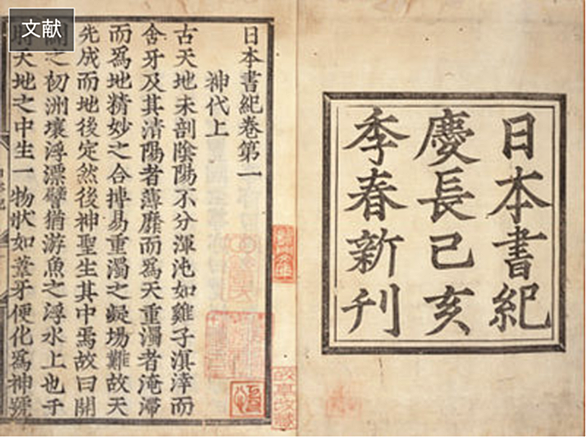 文献
日本書紀
慶長己亥
季春新刊
日本書紀卷第一
神代上
古天地未剖陰陽不分渾沌如雞子溟涬而
含牙及其清陽者薄靡而爲天重濁者淹滯
而爲地精妙之合摶易重濁之凝場難故天
先成而地後定然後神聖生其中焉故曰開
闢之初洲壤浮漂譬猶游魚之浮水上也于
時天地之中生一物狀如葦牙便化爲神號